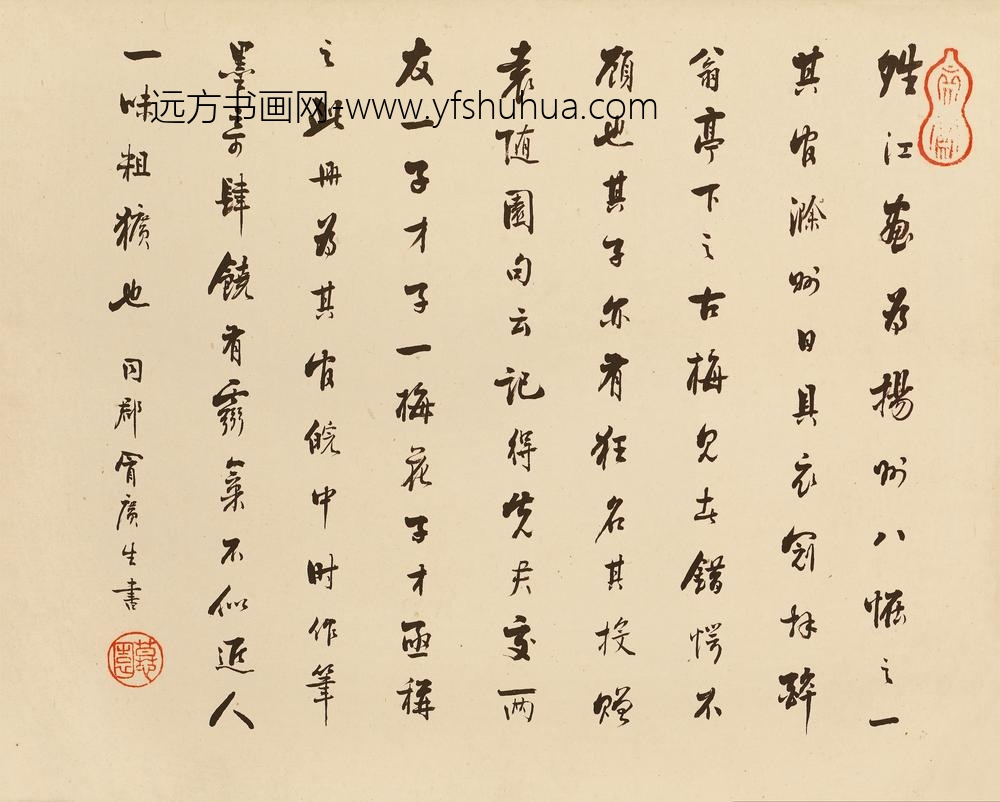 晴江畫為揚州八恠之一
其官滁州日具衣冠拜醉
翁亭下之古梅見者錯愕不
顧也其子亦有狂名其投贈
袁随園句云記得先君交兩
友一子才子一梅花子才亟稱
之此冊為其官皖中时作筆
墨奇肆饒有靈氣不似近人
一味粗獷也 同郡冒廣生書
远方书画网-www.yfshuhua.com